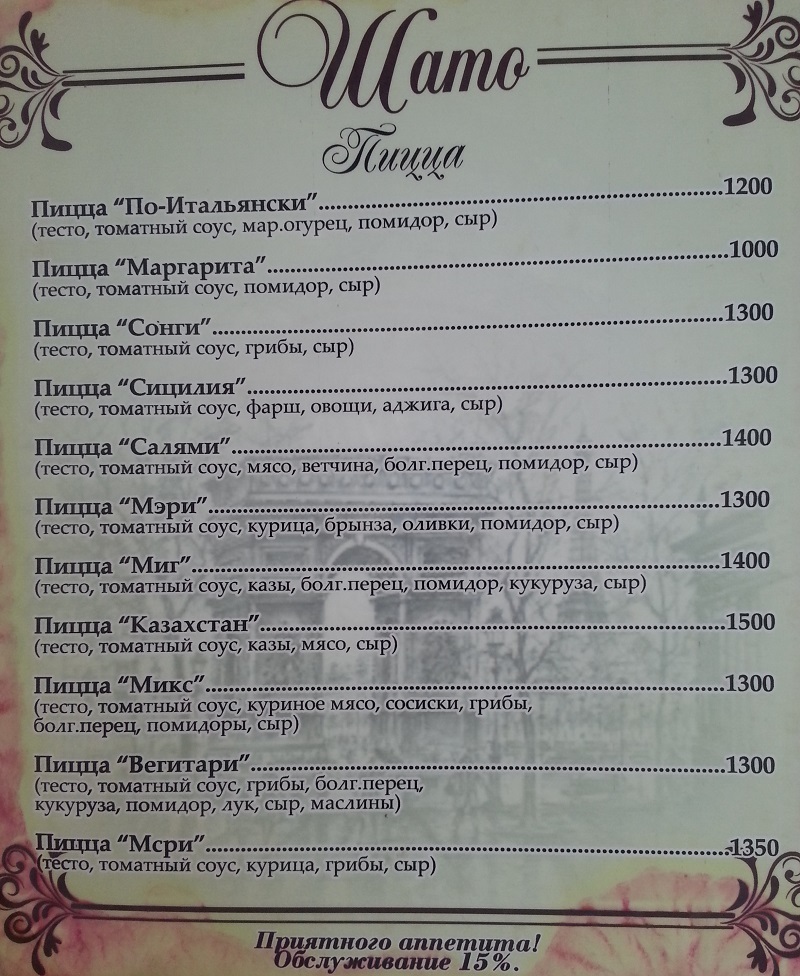 Шато
Пицца
Пицца “По-Итальянски”..........1200
(тесто, томатный соус, мар.огурец, помидор, сыр)
Пицца “Маргарита”..........1000
(тесто, томатный соус, помидор, сыр)
Пицца “Сонги”..........1300
(тесто, томатный соус, грибы, сыр)
Пицца “Сицилия”..........1300
(тесто, томатный соус, фарш, овощи, аджига, сыр)
Пицца “Салями”..........1400
(тесто, томатный соус, мясо, ветчина, болг.перец, помидор, сыр)
Пицца “Мэри”..........1300
(тесто, томатный соус, курица, брынза, оливки, помидор, сыр)
Пицца “Миг”..........1400
(тесто, томатный соус, казы, болг.перец, помидор, кукуруза, сыр)
Пицца “Казахстан”..........1500
(тесто, томатный соус, казы, мясо, сыр)
Пицца “Микс”..........1300
(тесто, томатный соус, куриное мясо, сосиски, грибы,
болг.перец, помидоры, сыр)
Пицца “Вегитари”..........1300
(тесто, томатный соус, грибы, болг.перец,
кукуруза, помидор, лук, сыр, маслины)
Пицца “Мсри”..........1350
(тесто, томатный соус, курица, грибы, сыр)
Приятного аппетита!
Обслуживание 15%.